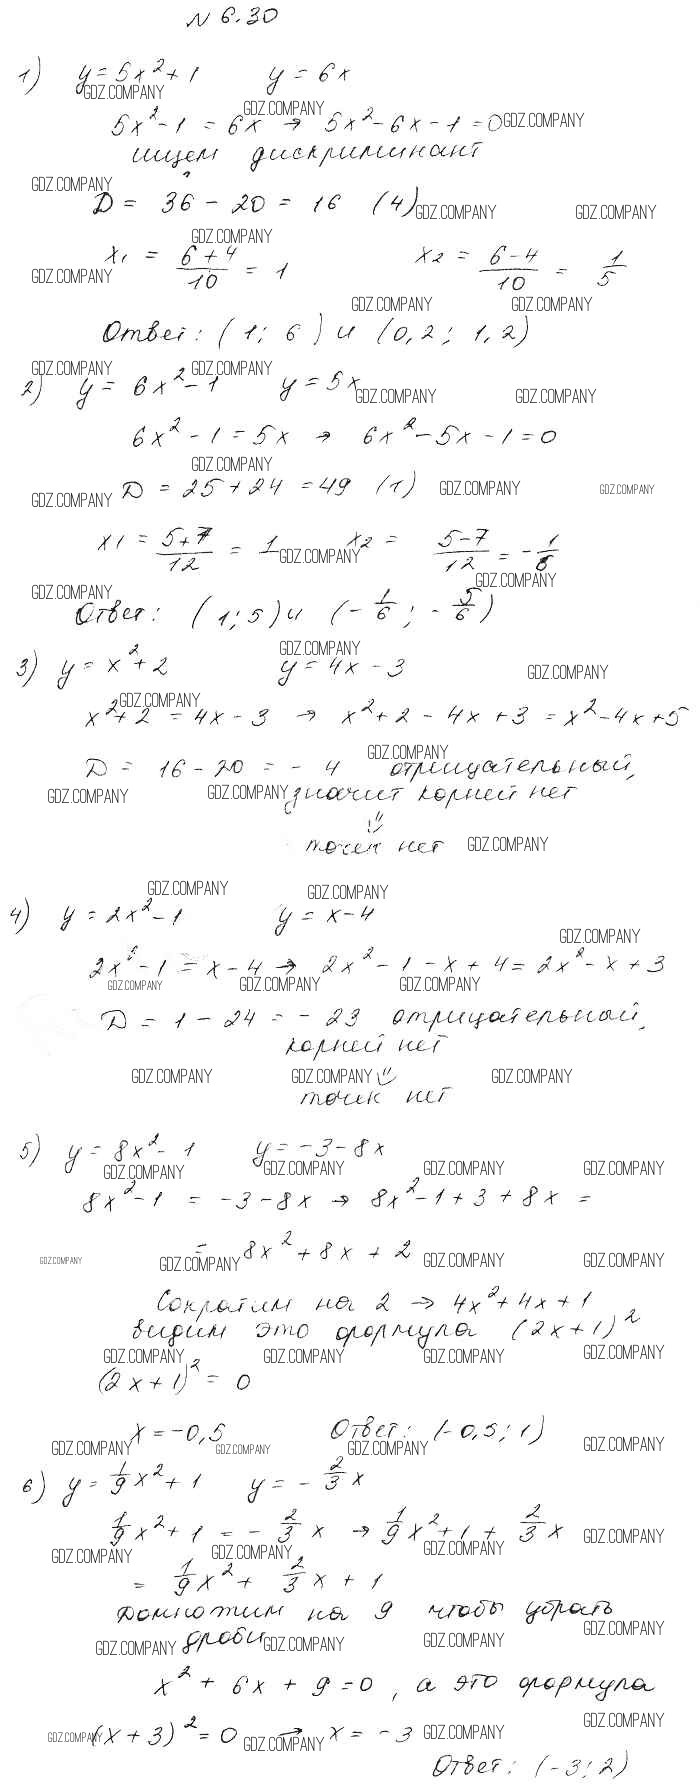 N 6.30
1) y = 5x² + 1 y = 6x
5x² - 1 = 6x → 5x² - 6x - 1 = 0
ищем дискриминант
D = 36 - 20 = 16 (4)
x₁ = (6+4)/10 = 1 x₂ = (6-4)/10 = 1/5
Ответ: (1; 6) и (0,2; 1,2)
2) y = 6x² - 1 y = 5x
6x² - 1 = 5x → 6x² - 5x - 1 = 0
D = 25 + 24 = 49 (1)
x₁ = (5+7)/12 = 1 x₂ = (5-7)/12 = -1/6
Ответ: (1; 5) и (-1/6; -5/6)
3) y = x² + 2 y = 4x - 3
x² + 2 = 4x - 3 → x² + 2 - 4x + 3 = x² - 4x + 5
D = 16 - 20 = - 4 отрицательный,
значит корней нет
точек нет
4) y = 2x² - 1 y = x - 4
2x² - 1 = x - 4 → 2x² - 1 - x + 4 = 2x² - x + 3
D = 1 - 24 = - 23 отрицательный,
корней нет
точек нет
5) y = 8x² - 1 y = -3 - 8x
8x² - 1 = -3 - 8x → 8x² - 1 + 3 + 8x =
= 8x² + 8x + 2
Сократим на 2 → 4x² + 4x + 1
видим это формула (2x+1)²
(2x+1)² = 0
x = -0,5 Ответ: (-0,5; 1)
6) y = 1/9 x² + 1 y = - 2/3 x
1/9 x² + 1 = - 2/3 x → 1/9 x² + 1 + 2/3 x
= 1/9 x² + 2/3 x + 1
Домножим на 9 чтобы убрать
дроби
x² + 6x + 9 = 0, а это формула
(x+3)² = 0 → x = -3
Ответ: (-3; 2)
GDZ.COMPANY